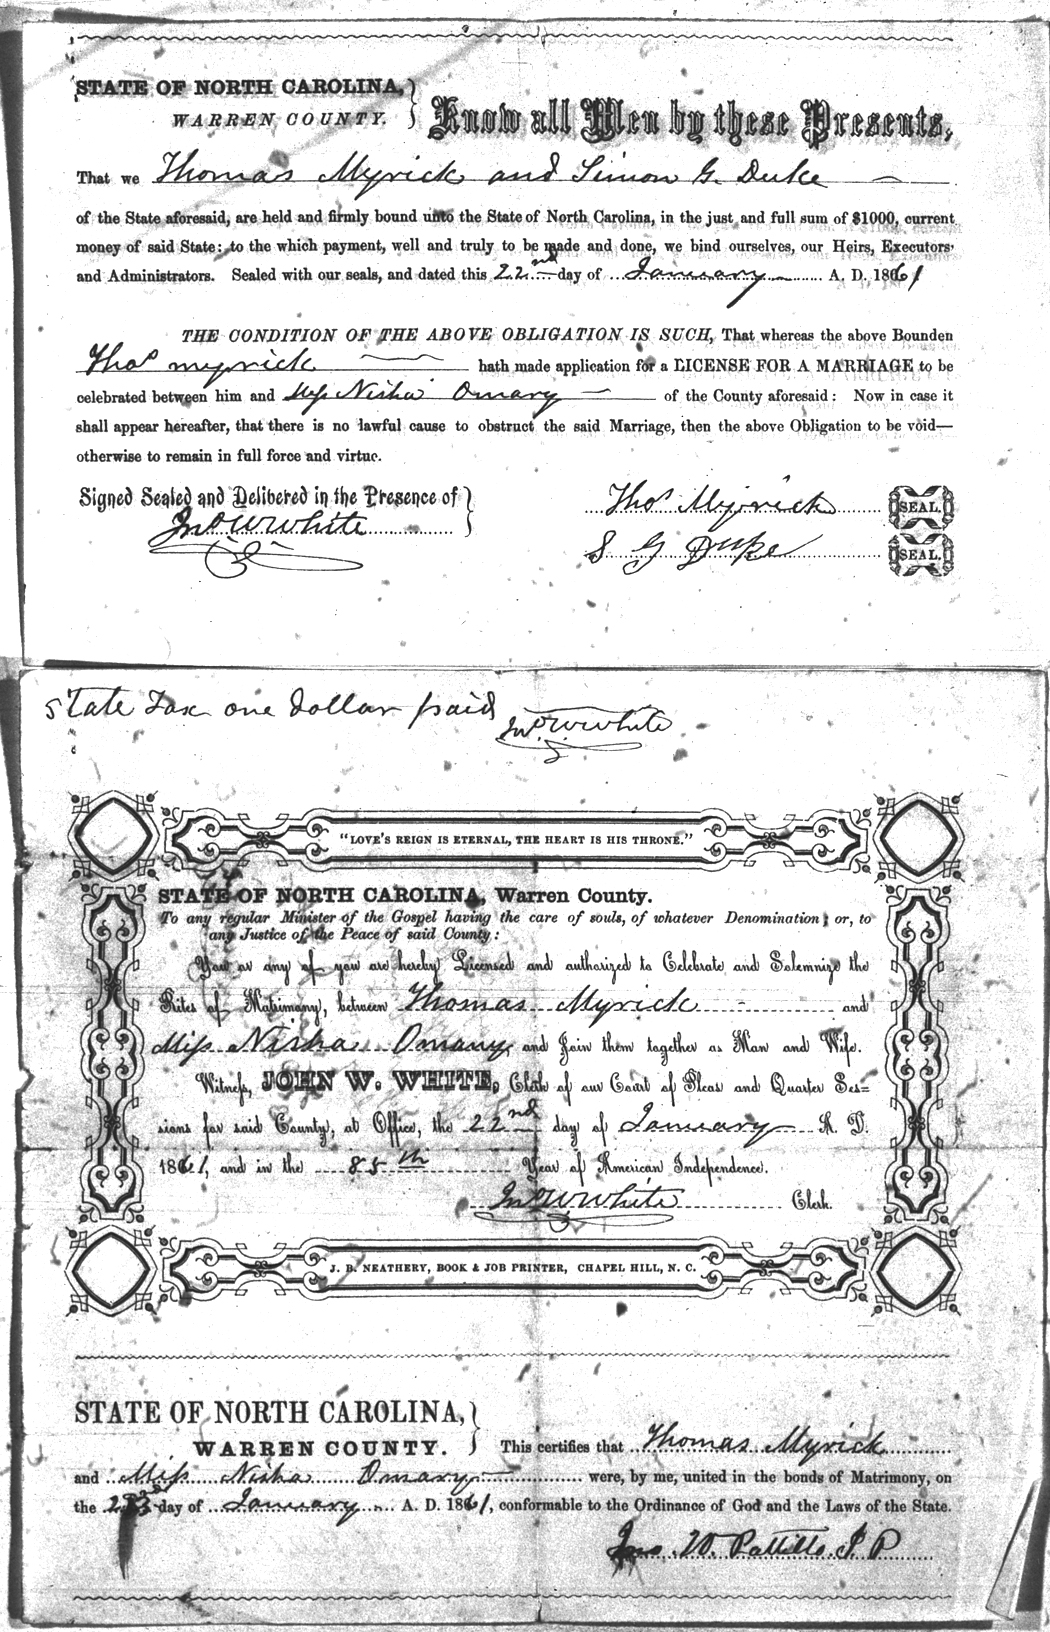 STATE OF NORTH CAROLINA,
WARREN COUNTY.
Know all Men by these Presents,
That we Thomas Myrick and Simon G. Duke
of the State aforesaid, are held and firmly bound unto the State of North Carolina, in the just and full sum of $1000, current
money of said State: to the which payment, well and truly to be made and done, we bind ourselves, our Heirs, Executors
and Administrators. Sealed with our seals, and dated this 22nd day of January A. D. 1861
THE CONDITION OF THE ABOVE OBLIGATION IS SUCH, That whereas the above Bounden
Thos Myrick hath made application for a LICENSE FOR A MARRIAGE to be
celebrated between him and Miss Nisha Omary of the County aforesaid: Now in case it
shall appear hereafter, that there is no lawful cause to obstruct the said Marriage, then the above Obligation to be void—
otherwise to remain in full force and virtue.
Signed Sealed and Delivered in the Presence of
Jno W White
Thos Myrick SEAL.
S G Duke SEAL.
State Tax one dollar paid
Jno. W White
"LOVE'S REIGN IS ETERNAL, THE HEART IS HIS THRONE."
STATE OF NORTH CAROLINA, Warren County.
To any regular Minister of the Gospel having the care of souls, of whatever Denomination; or, to
any Justice of the Peace of said County:
You or any of you are hereby Licensed and authorized to Celebrate and Solemnize the
Rites of Matrimony, between Thomas Myrick and
Miss Nisha Omary and Join them together as Man and Wife.
Witness, JOHN W. WHITE, Clerk of our Court of Pleas and Quarter Ses=
sions for said County, at Office, the 22nd day of January A. D.
1861, and in the 85th Year of American Independence.
Jno W White Clerk.
J. B. NEATHERY, BOOK & JOB PRINTER, CHAPEL HILL, N. C.
STATE OF NORTH CAROLINA,
WARREN COUNTY.
This certifies that Thomas Myrick
and Miss Nisha Omary were, by me, united in the bonds of Matrimony, on
the day of January A. D. 1861, conformable to the Ordinance of God and the Laws of the State.
W. Pattillo J P